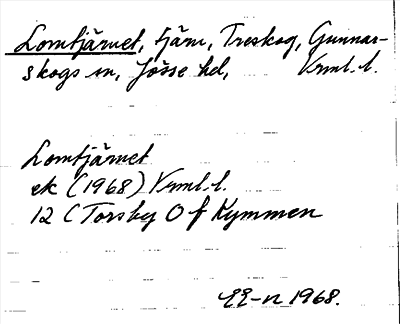 Lomtjärnet, tjärn, Treskog, Gunnar-
skogs sn, Jösse hd, Vrml. l.
Lomtjärnet
ek (1968) Vrml. l.
12 C Torsby O f Kymmen
1968.